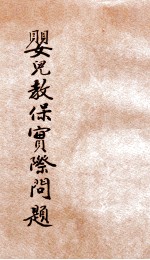 嬰兒教保實際問題